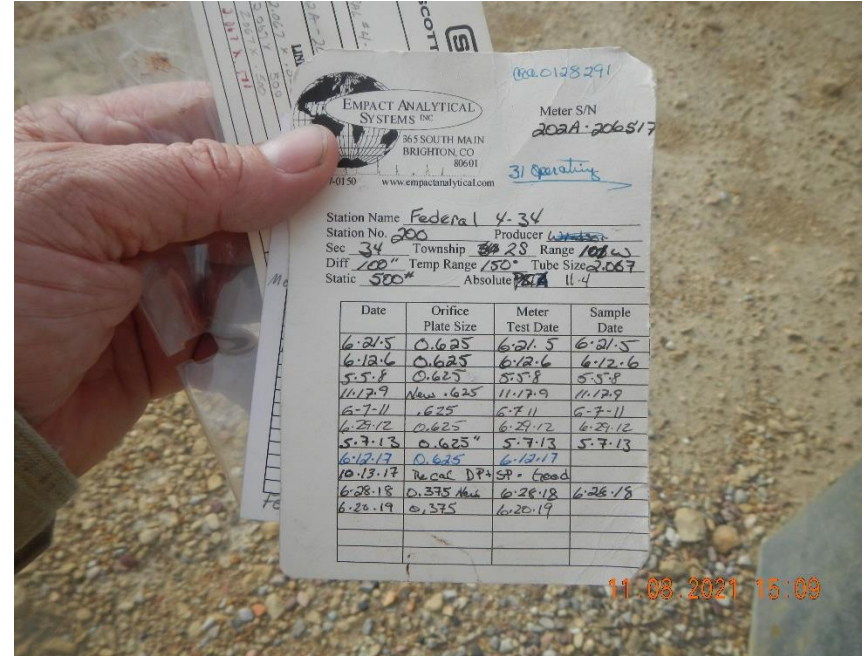 SCOTT
EMPACT ANALYTICAL
SYSTEMS INC
365 SOUTH MAIN
BRIGHTON, CO
80601
-0150 www.empactanalytical.com
Meter S/N
202A-206517
31 Operating
Station Name Federal 4-34
Station No. 200 Producer
Sec 34 Township 2S Range
Diff 100" Temp Range 150° Tube Size 2.067
Static 500# Absolute 11.4
Date Orifice Plate Size Meter Test Date Sample Date
6·21·5 0.625 6·21·5 6·21·5
6·12·6 0.625 6·12·6 6·12·6
5·5·8 0.625 5·5·8 5·5·8
11·17·9 New .625 11·17·9 11·17·9
6-7-11 .625 6·7·11 6-7-11
6·29·12 0.625 6·29·12 6·29·12
5·7·13 0.625" 5·7·13 5·7·13
6·12·17 0.625 6·12·17
10·13·17 Re Cal DP+SP · Good
6·28·18 0.375 New 6·28·18 6·28·18
6·20·19 0.375 6·20·19
11.08.2021 15:09